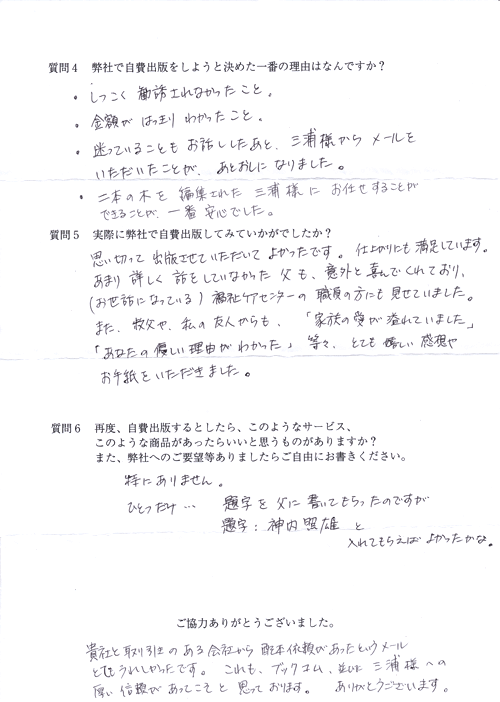 質問４　弊社で自費出版をしようと決めた一番の理由はなんですか？
・しつこく 勧誘されなかったこと。
・金額が はっきり わかったこと。
・迷っていることも お話ししたあと、三浦様から メールを
いただいたことが、あとおしに なりました。
・二本の木を 編集された 三浦様に お任せすることが
できることが、一番 安心でした。
質問５　実際に弊社で自費出版してみていかがでしたか？
思い切って 出版させていただいて よかったです。仕上がりにも 満足しています。
あまり 詳しく 話をしていなかった 父も、意外と 喜んでくれており、
(お世話になっている) 福祉ケアセンターの 職員の方にも 見せていました。
また、叔父や、私の 友人からも、「家族の愛が 溢れていました」
「あなたの 優しい 理由が わかった」等々、とても 嬉しい 感想や
お手紙を いただきました。
質問６　再度、自費出版するとしたら、このようなサービス、
このような商品があったらいいと思うものがありますか？
また、弊社へのご要望等ありましたらご自由にお書きください。
特に ありません。
ひとつだけ… 題字を 父に 書いてもらったのですが
題字：神内 照雄 と
入れてもらえば よかったかな。
ご協力ありがとうございました。
貴社と 取り引きの ある会社から 配本依頼が あったという メール
とてもうれしかったです。これも、ブックコム、並びに 三浦様への
厚い 信頼が あってこそと 思っております。ありがとうございます。